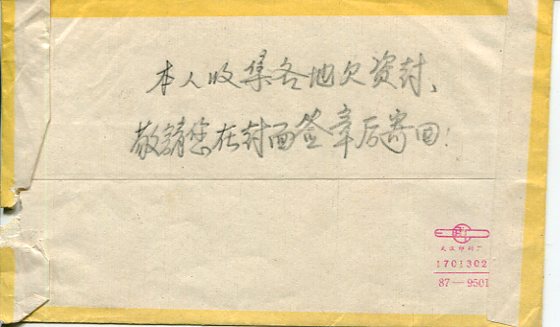 本人收集各地欠资封、
敬請您在封面签章后寄回！
1701302
87—9501